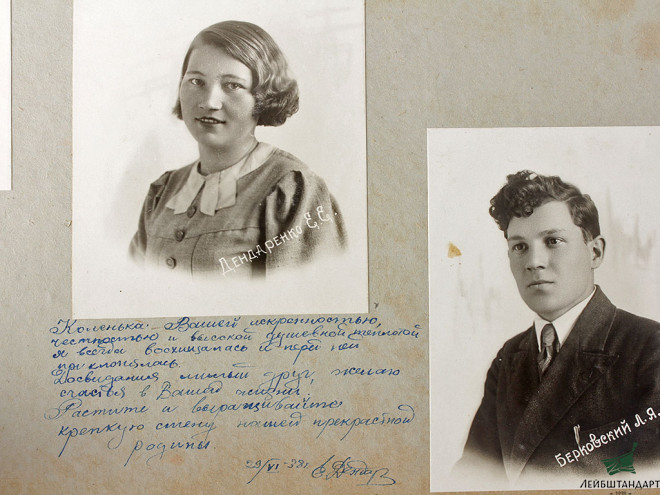 Дендаренко Е.Е.
Коленька – Вашей искренностью,
честностью и высокой душевной теплотой
я всегда восхищалась и перед ней
преклонялась.
Досвидания милый друг, желаю
счастья в Вашей жизни.
Растите и выращивайте
крепкую смену нашей прекрастной
родины.
29/VI-38г.
Берковский Л.Я.
ЛЕЙБШТАНДАРТ